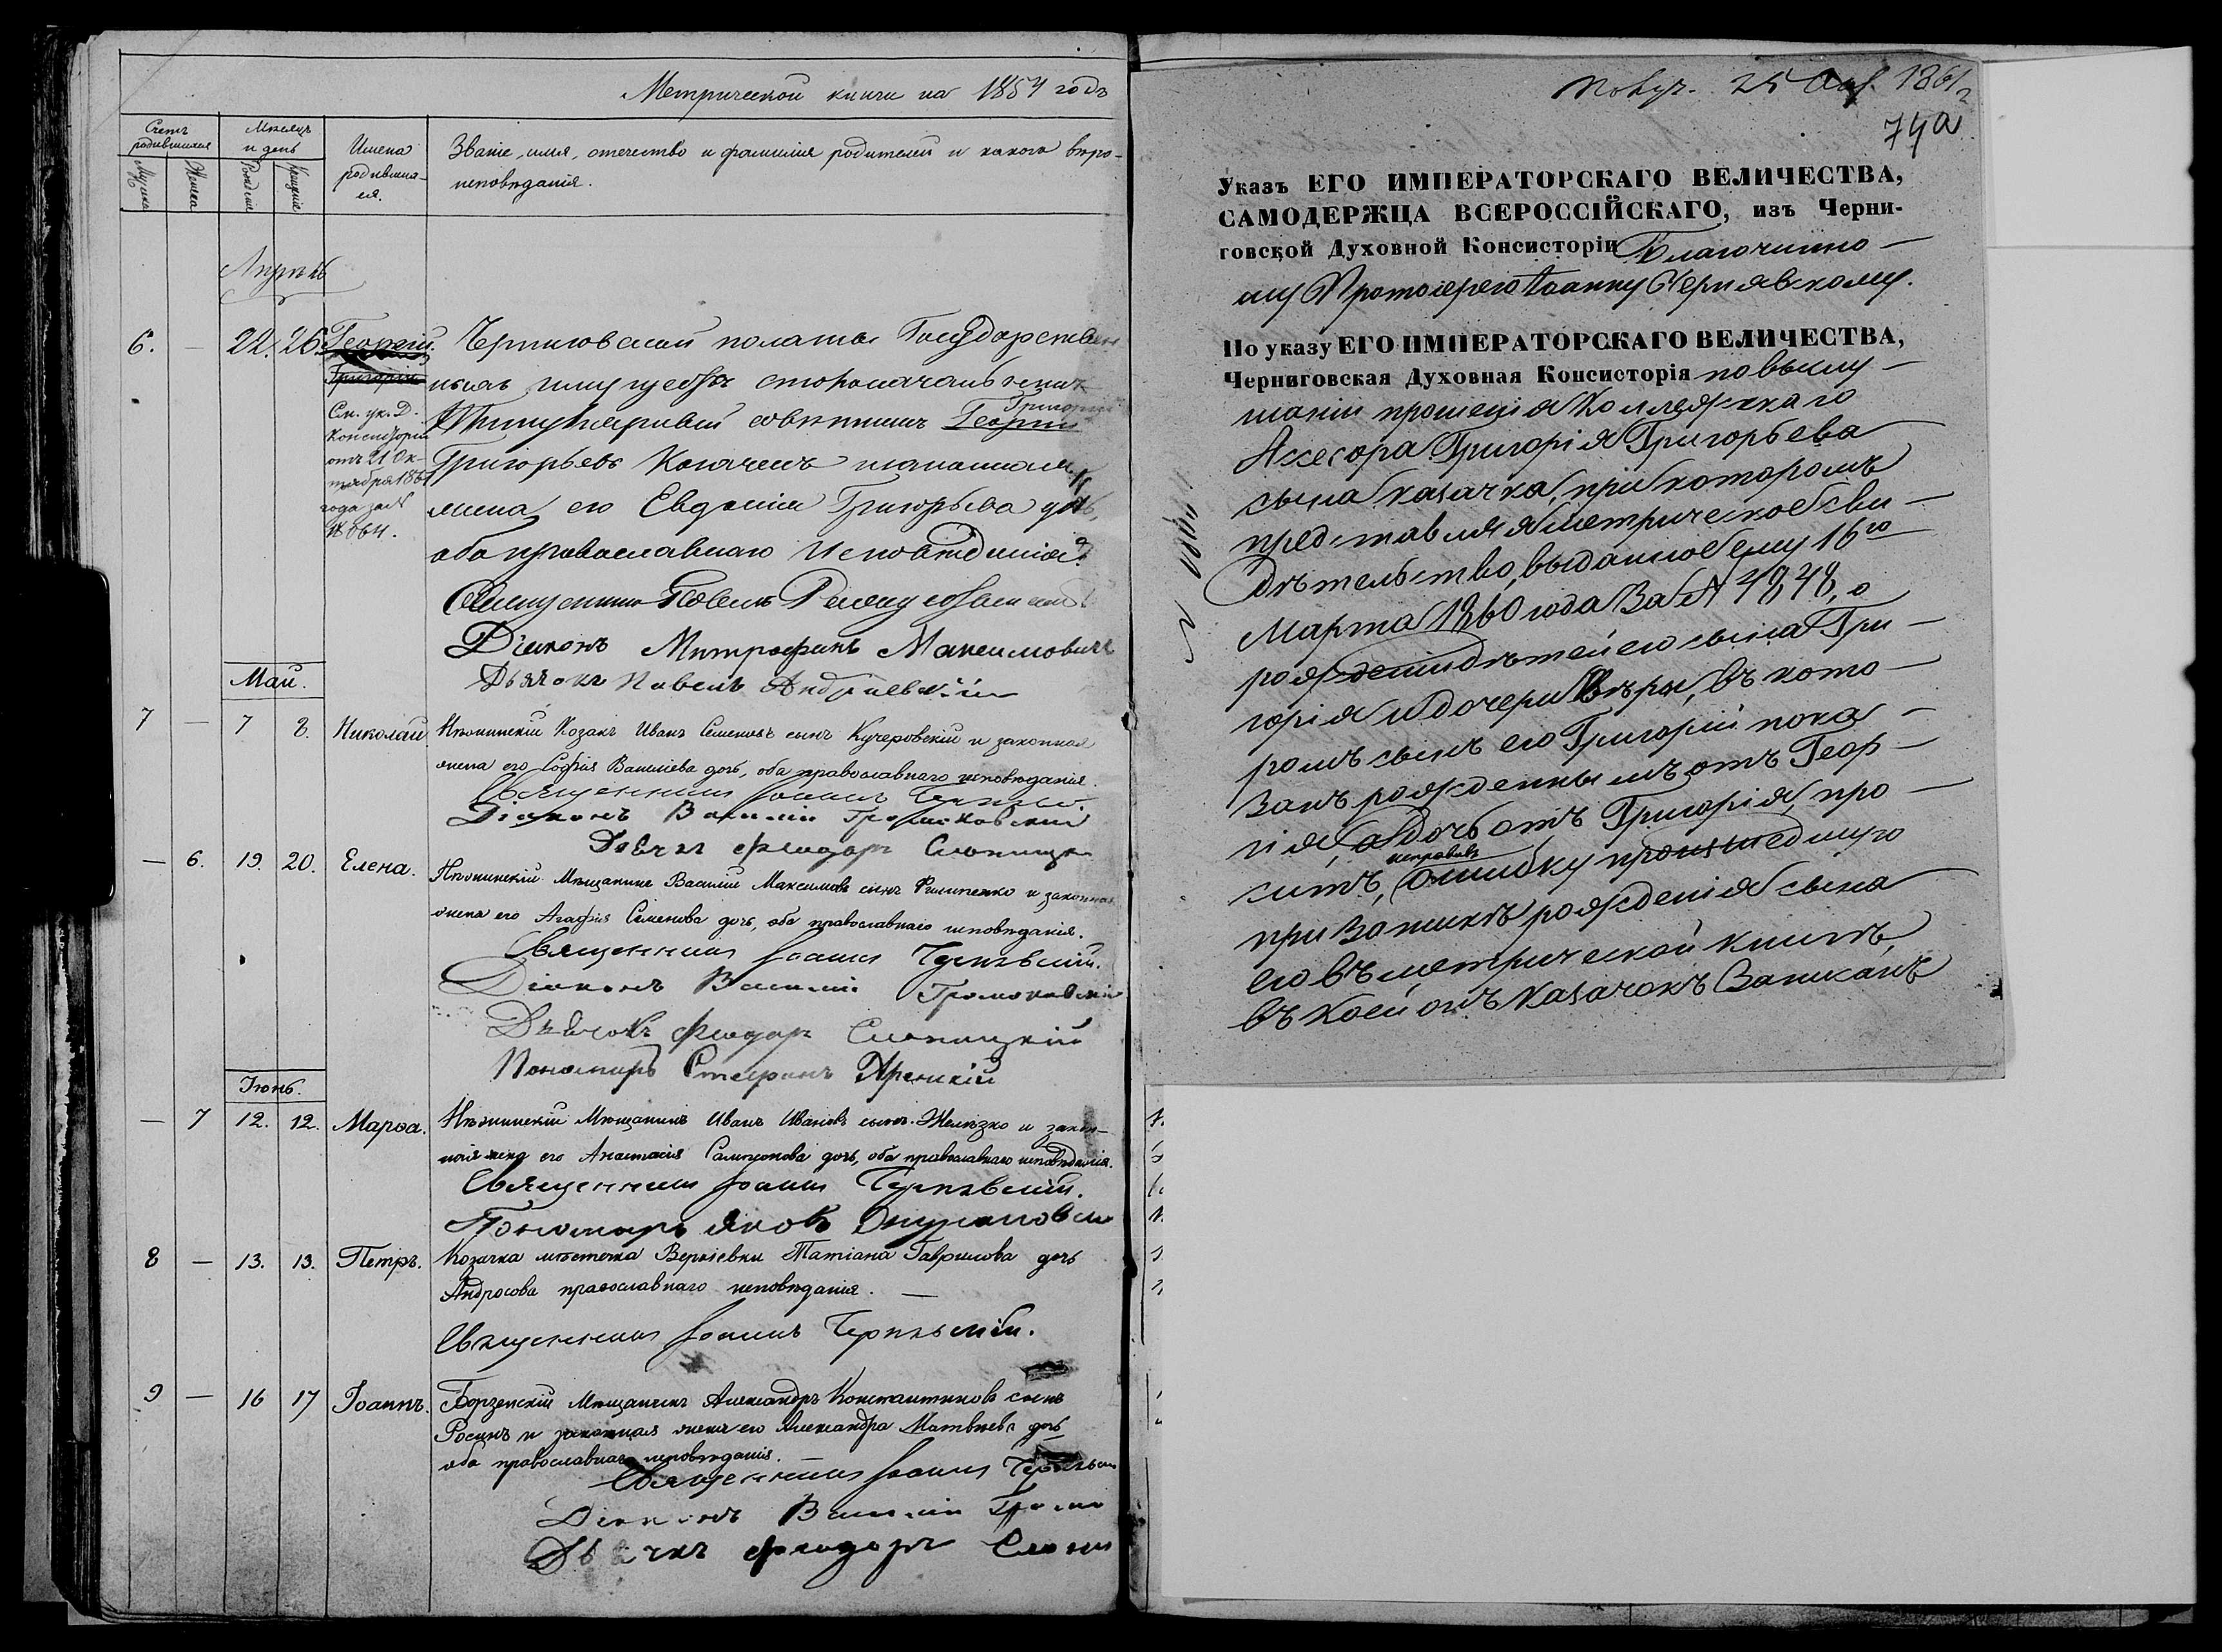 Метрической книги на 1854 годъ
Счетъ родившихся
Мѣсяцъ и день
Имена родившихся.
Званіе, имя, отечество и фамилія родителей и какого вѣро-
исповѣданія.
Мужеска
Женска
Рожденіе
Крещеніе
Апрѣль
6. — 22. 26 Георгій. Черниговской палаты Государствен
Григорій
ныхъ имуществъ столоначальникъ
См. ук. Д.
Консисторіи
отъ 21 Ок-
тября 1861
года за №
Титулярный совѣтникъ Георгій
Григорій
Григорьевъ
жена его Евдокія Григорьева дочь,
оба православнаго исповѣданія.
Священникъ Павелъ
Діаконъ Митрофанъ Максимовичъ
Дьячокъ Павелъ Андріевскій
Май.
7 — 7 8. Николай. Нѣжинскій Козакъ Иванъ Семеновъ сынъ Кучеровскій и законная
жена его Софія Васильева дочь, оба православнаго исповѣданія.
Священникъ Іоаннъ
Діаконъ Василій Громаковскій
Дьячокъ Феодоръ
— 6. 19. 20. Елена. Нѣжинскій Мѣщанинъ Василій Максимовъ сынъ Филипенко и законная
жена его Агафія Семенова дочь, оба православнаго исповѣданія.
Священникъ Іоаннъ Чернявскій.
Діаконъ Василій Громаковскій
Дьячокъ Феодоръ
Пономарь Стефанъ
Іюнь.
— 7 12. 12. Марѳа. Нѣжинскій Мѣщанинъ Иванъ Ивановъ сынъ Желѣзко и закон-
ная жена его Анастасія Сампсонова дочь, оба православнаго исповѣданія.
Священникъ Іоаннъ Чернявскій.
Пономарь Яковъ
8 — 13. 13. Петръ. Козачка мѣстечка Веркіевки Татіана Гаврилова дочь
Андросова православнаго исповѣданія. —
Священникъ Іоаннъ Чернявскій.
9 — 16 17 Іоаннъ. Борзенскій Мѣщанинъ Александръ Константиновъ сынъ
Росинъ и законная жена его Александра Матвѣева дочь
оба православнаго исповѣданія.
Священникъ Іоаннъ
Діаконъ Василій
Дьячокъ Феодоръ
Получ. 25 1861
74а
Указъ ЕГО ИМПЕРАТОРСКАГО ВЕЛИЧЕСТВА,
САМОДЕРЖЦА ВСЕРОССІЙСКАГО, изъ Черни-
говской Духовной Консисторіи Благочинно-
му Протоіерею Іоанну Чернявскому.
По указу ЕГО ИМПЕРАТОРСКАГО ВЕЛИЧЕСТВА,
Черниговская Духовная Консисторія по выслу-
шаніи прошенія Коллежскаго
Ассесора Григорія Григорьева
сына Казачка, при которомъ
представляя метрическое сви-
дѣтельство, выданное ему 16го
Марта 1860 года за № 4848, о
рожденіи дѣтей его сына Гри-
горія и дочери Вѣры, въ кото-
ромъ сынъ его Григорій пока-
занъ рожденнымъ отъ Геор-
гія, а дочь отъ Григорія, про-
исправить
ситъ, ошибку происшедшую
при запискѣ рожденія сына
его въ метрической книгѣ,
въ коей онъ Казачокъ записанъ